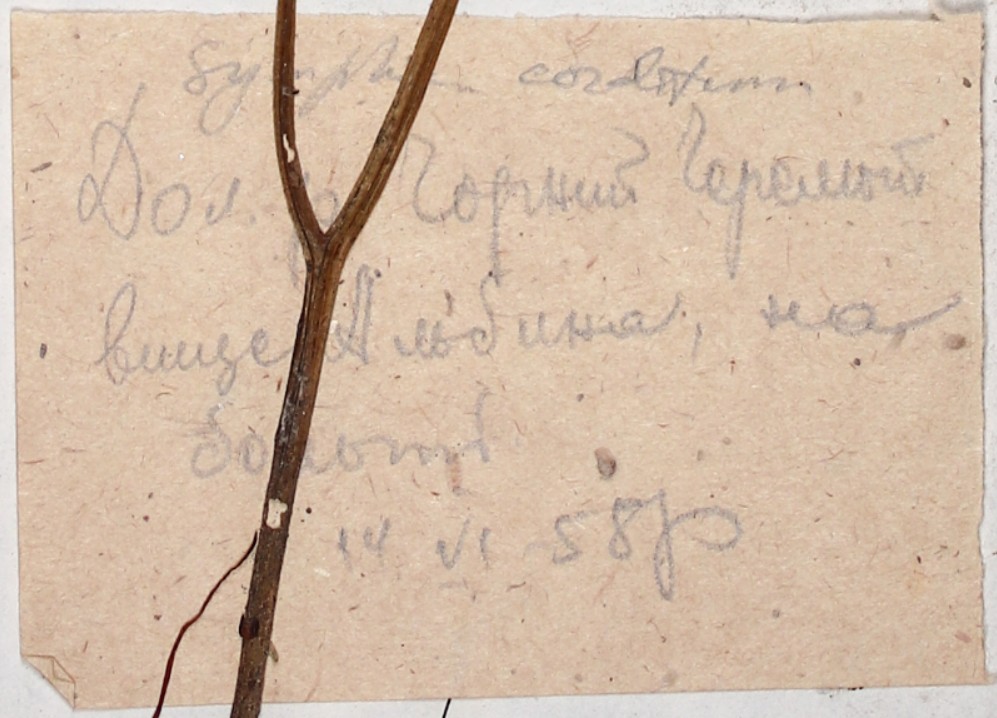 Symphytum cordatum
Дол. р. Чорний Черемош
вище Альбина, на
болоті
14 VI 58р